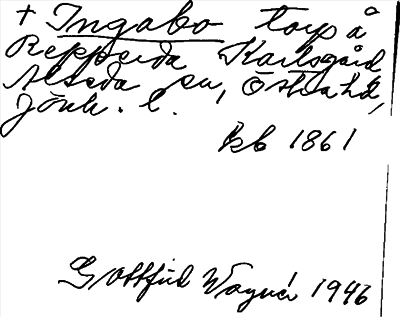 + Ingabo torp å
Repperda Karlsgård
Alseda sn, Östra hd,
Jönk. l.
kb 1861
Gottfrid Wagnér 1946